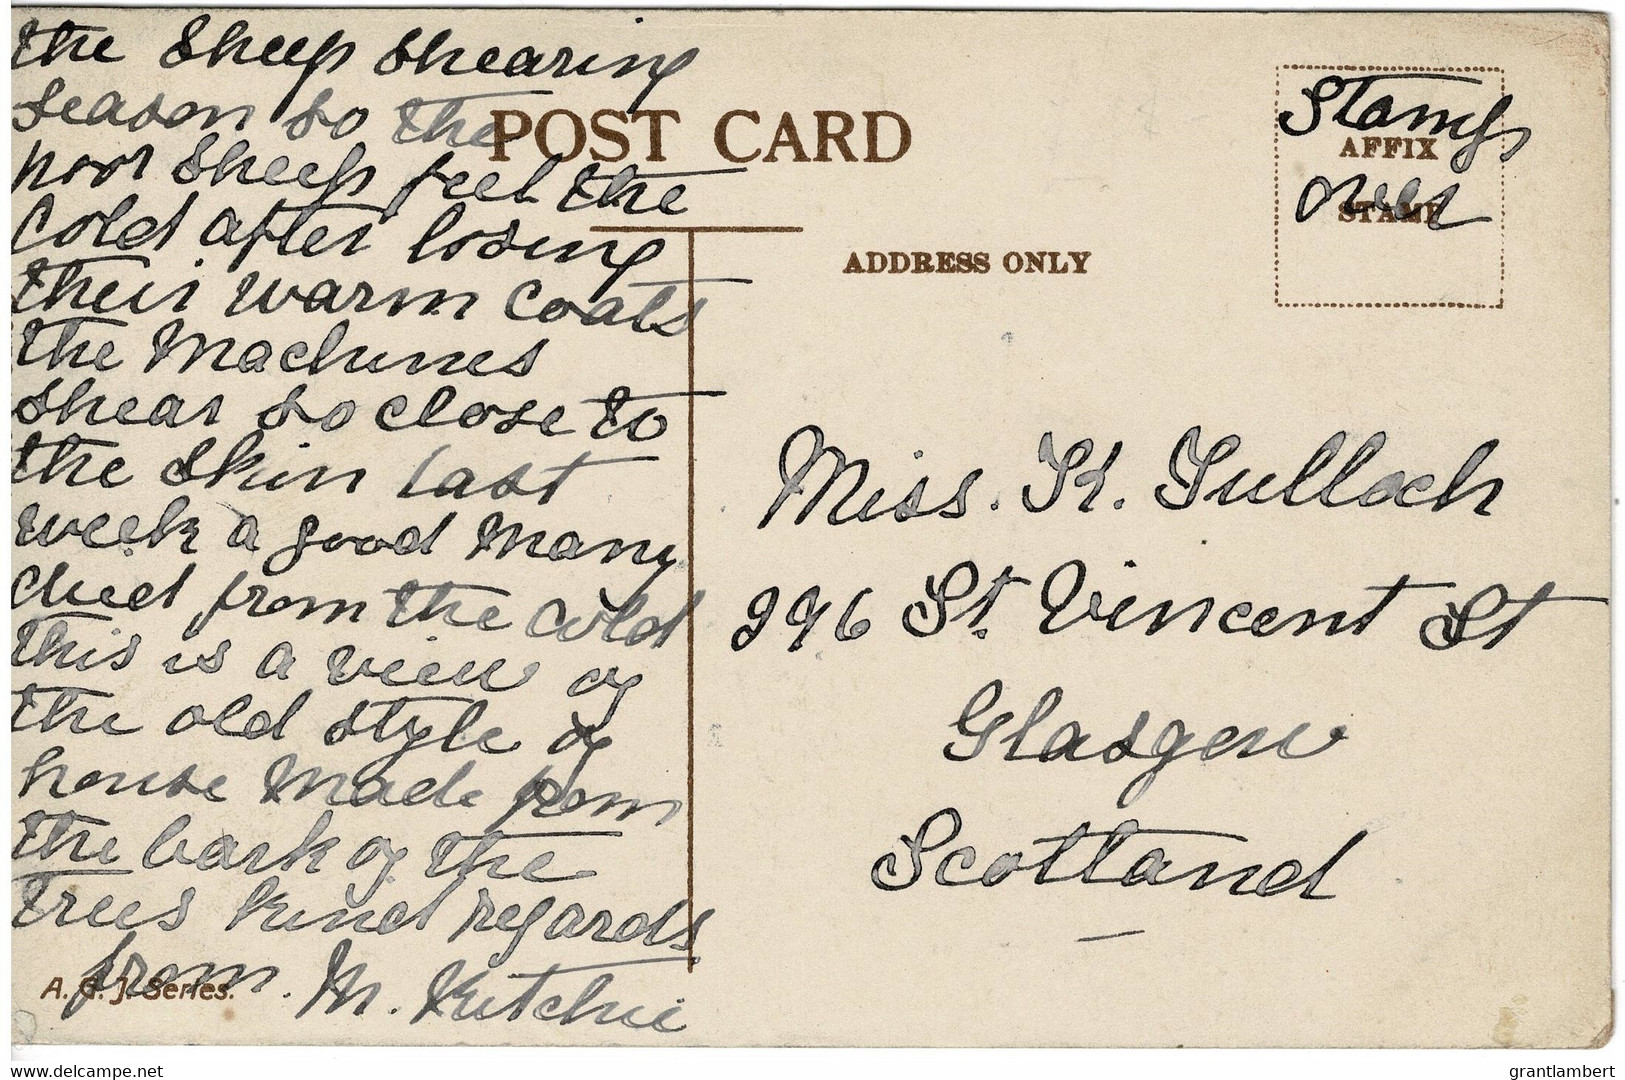 the Sheep Shearing
Season so the
poor Sheep feel the
Cold after losing
their warm coats
the Machines
shear so close to
the Skin last
week a good many
died from the cold
this is a view of
the old style of
house made from
the bark of the
trees kind regards
from. M.
A. G. J. Series.
POST CARD
Stamps
over
AFFIX
STAMP
ADDRESS ONLY
Miss. K. Tulloch
296 St. Vincent St
Glasgow
Scotland
delcampe.net
grantlambert